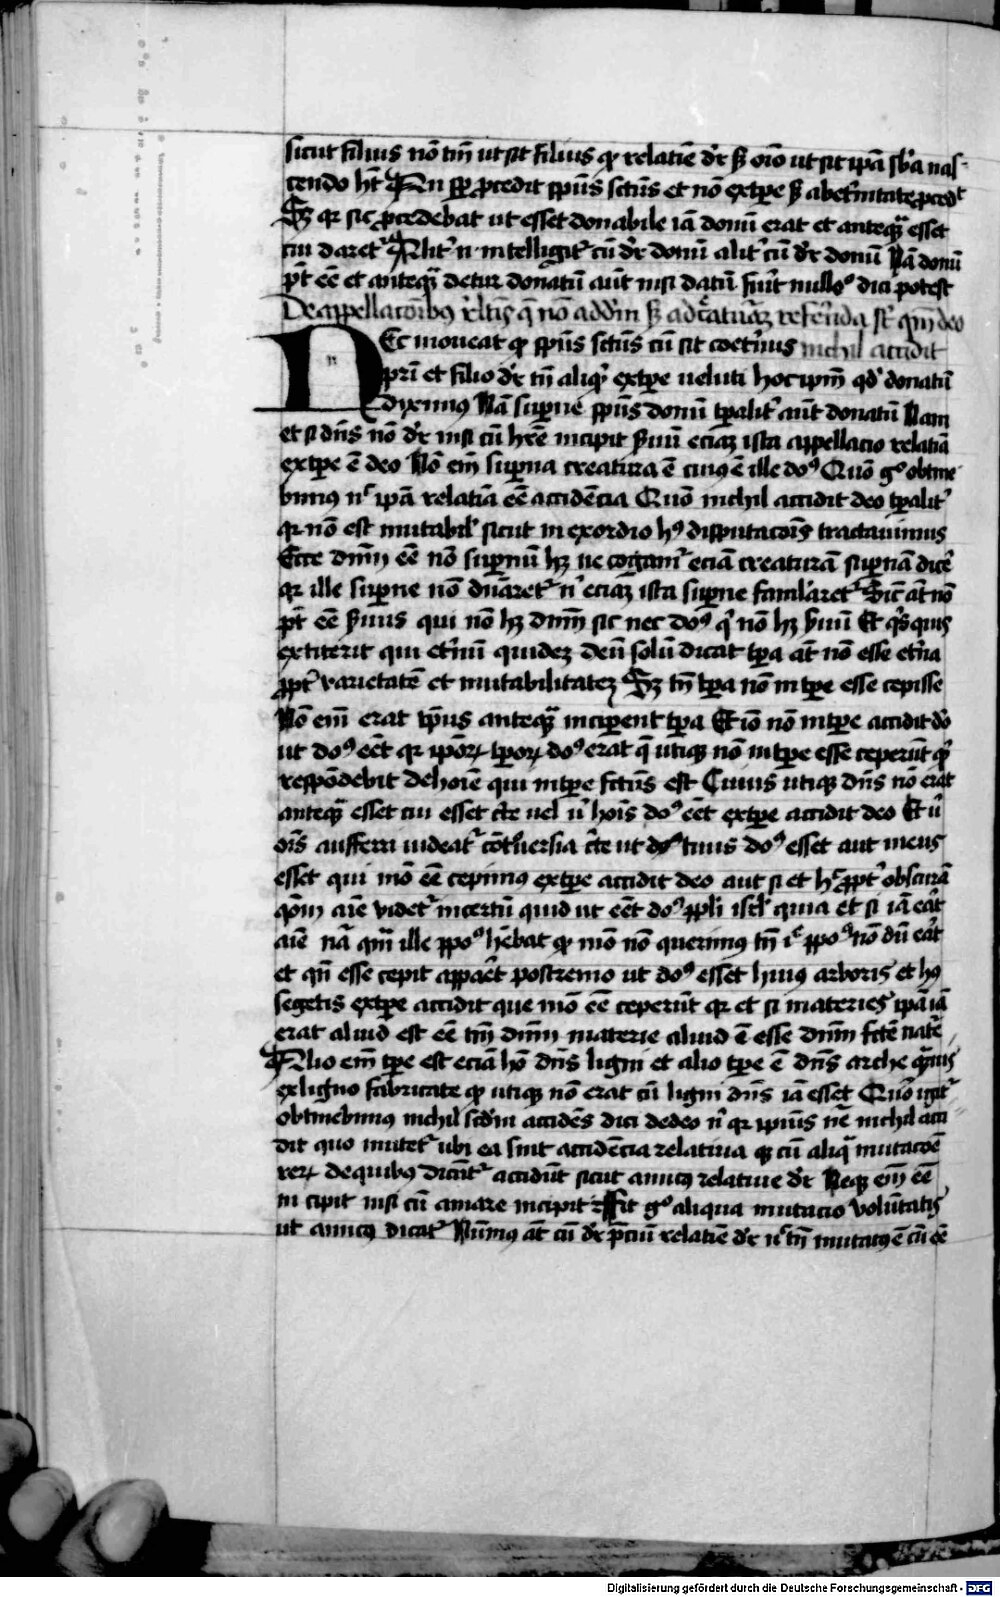 sicut filius nō tm̄ ut sit filius qr relatiē dr̄ sꝫ oīo ut sit ipā sb̄a nas-
cendo hꝫ An sp̄ ꝓcedit spūs sctūs et nō extꝑe sꝫ ab et̄nitate ꝓcedᵗ
Sꝫ qr sic ꝓcedebat ut esset donabile iā donū erat et anteqᷓ esset
cui daretᷣ Alitᷣ n̄ intelligitᷣ cū dr̄ donū alitᷣ cū dr̄ donū Nā donū
pt̄ eē et anteqᷓ detur donatū aūt nisi datū fuīt nulloꝰ dici potest
De appellacōibꝰ
Ec moueat qr spūs sctūs cū sit coet̄nus nichil accidit
pri et filio dr̄ tn̄ aliqͥ extꝑe ueluti hoc ipm̄ qd donatū
diximus Nā sup̄ne spūs donū tꝑalitᷣ aūt donatū Nam
et si dn̄s nō dr̄ nisi cū habere incipit s̄uū eciā ista appellacio relatiā
extꝑe ē deo Nō em̄ sup̄na creatura ē cuiꝰ ē ille dn̄s Quō gͦ obtine
bimus nͨ ipā relatiā eē accidēcia Quō nichil accidit deo tꝑalitᷣ
qr nō est mutabil' sicut in exordio hꝰ disputacōis tractauimus
Ecce dn̄m eē nō sup̄nū hꝫ ne cogamᷣ eciā creaturā sup̄nā dicē
qr ille sup̄ne nō dn̄aretᷣ nͥ eciā ista sup̄ne famlāretᷣ Sic āt nō
pt̄ eē s̄uus qui nō hꝫ dn̄m sic nec dn̄s qͥ nō hꝫ s̄uū Et qͥsquis
extiterit qui et̄nū quidez deū solū dicat tꝑa āt nō esse et̄na
ꝓptᷣ varietatē et mutabilitatez Sꝫ tn̄ tꝑa nō in tꝑe esse cepisse
Nō em̄ erat tp̄us anteqᷓ incipent tꝑa Et iō nō in tꝑe accidit dō
ut dn̄s eēt qr ipōꝝ tꝑoꝝ dn̄s erat q̄ utiqꝫ nō in tꝑe esse ceperūt qͥd
respōdebit de hoīe qui in tꝑe fctūs est Cuius utiqꝫ dn̄s nō erat
anteqᷓ esset cui esset cte uel ut hoīs dn̄s eēt extꝑe accidit deo Et ut
oīs aufferri uideatᷣ cōtͦuersia cte ut tuus dn̄s esset aut meus
esset qui mō eē cepimus extꝑe accidit deo aut si et hͨ ꝓptᷣ obscurā
qōm aīe videtᷣ incertū quid ut eēt dn̄s ppli isrl' quia et si iā eāt
aīe nā qm̄ ille ppͦs hēbat qr mō nō querimus tn̄ ppͦs nō dū eāt
et qn̄ esse cepit appaēt postremo ut dn̄s esset huiꝰ arboris et hꝰ
segetis extꝑe accidit que mō eē ceperūt qr et si materies ipā iā
erat aliud est eē tn̄ dn̄m materie aliud ē esse dn̄m fctē nate
Alio em̄ tꝑe est eciā hō dn̄s ligni et alio tꝑe ē dn̄s arche qᷓuis
ex ligno fabricate qr utiqꝫ nō erat cū ligni dn̄s iā esset Quō igitᷣ
obtinebimus nichil scdm̄ accidēs dici de deo nͥ qr ipiūs ne nichil acci
dit quo mutetᷣ ubi ea sint accidēcia relatiua qꝫ cū aliqͣ mutacōe
reꝝ de quibꝰ dicūtᷣ accidūt sicut amicꝰ relatiue dr̄ Neqꝫ em̄ eē
in cipit nisi cū amare incipit Fit gͦ aliqua mutacio volūtatis
ut amicꝰ dicatᷣ Nūmus āt cū dr̄ p̄ciū relatiē dr̄ nͨ tn̄ mutatꝰ ē cū eē
Digitalisierung gefördert durch die Deutsche Forschungsgemeinschaft - DFG